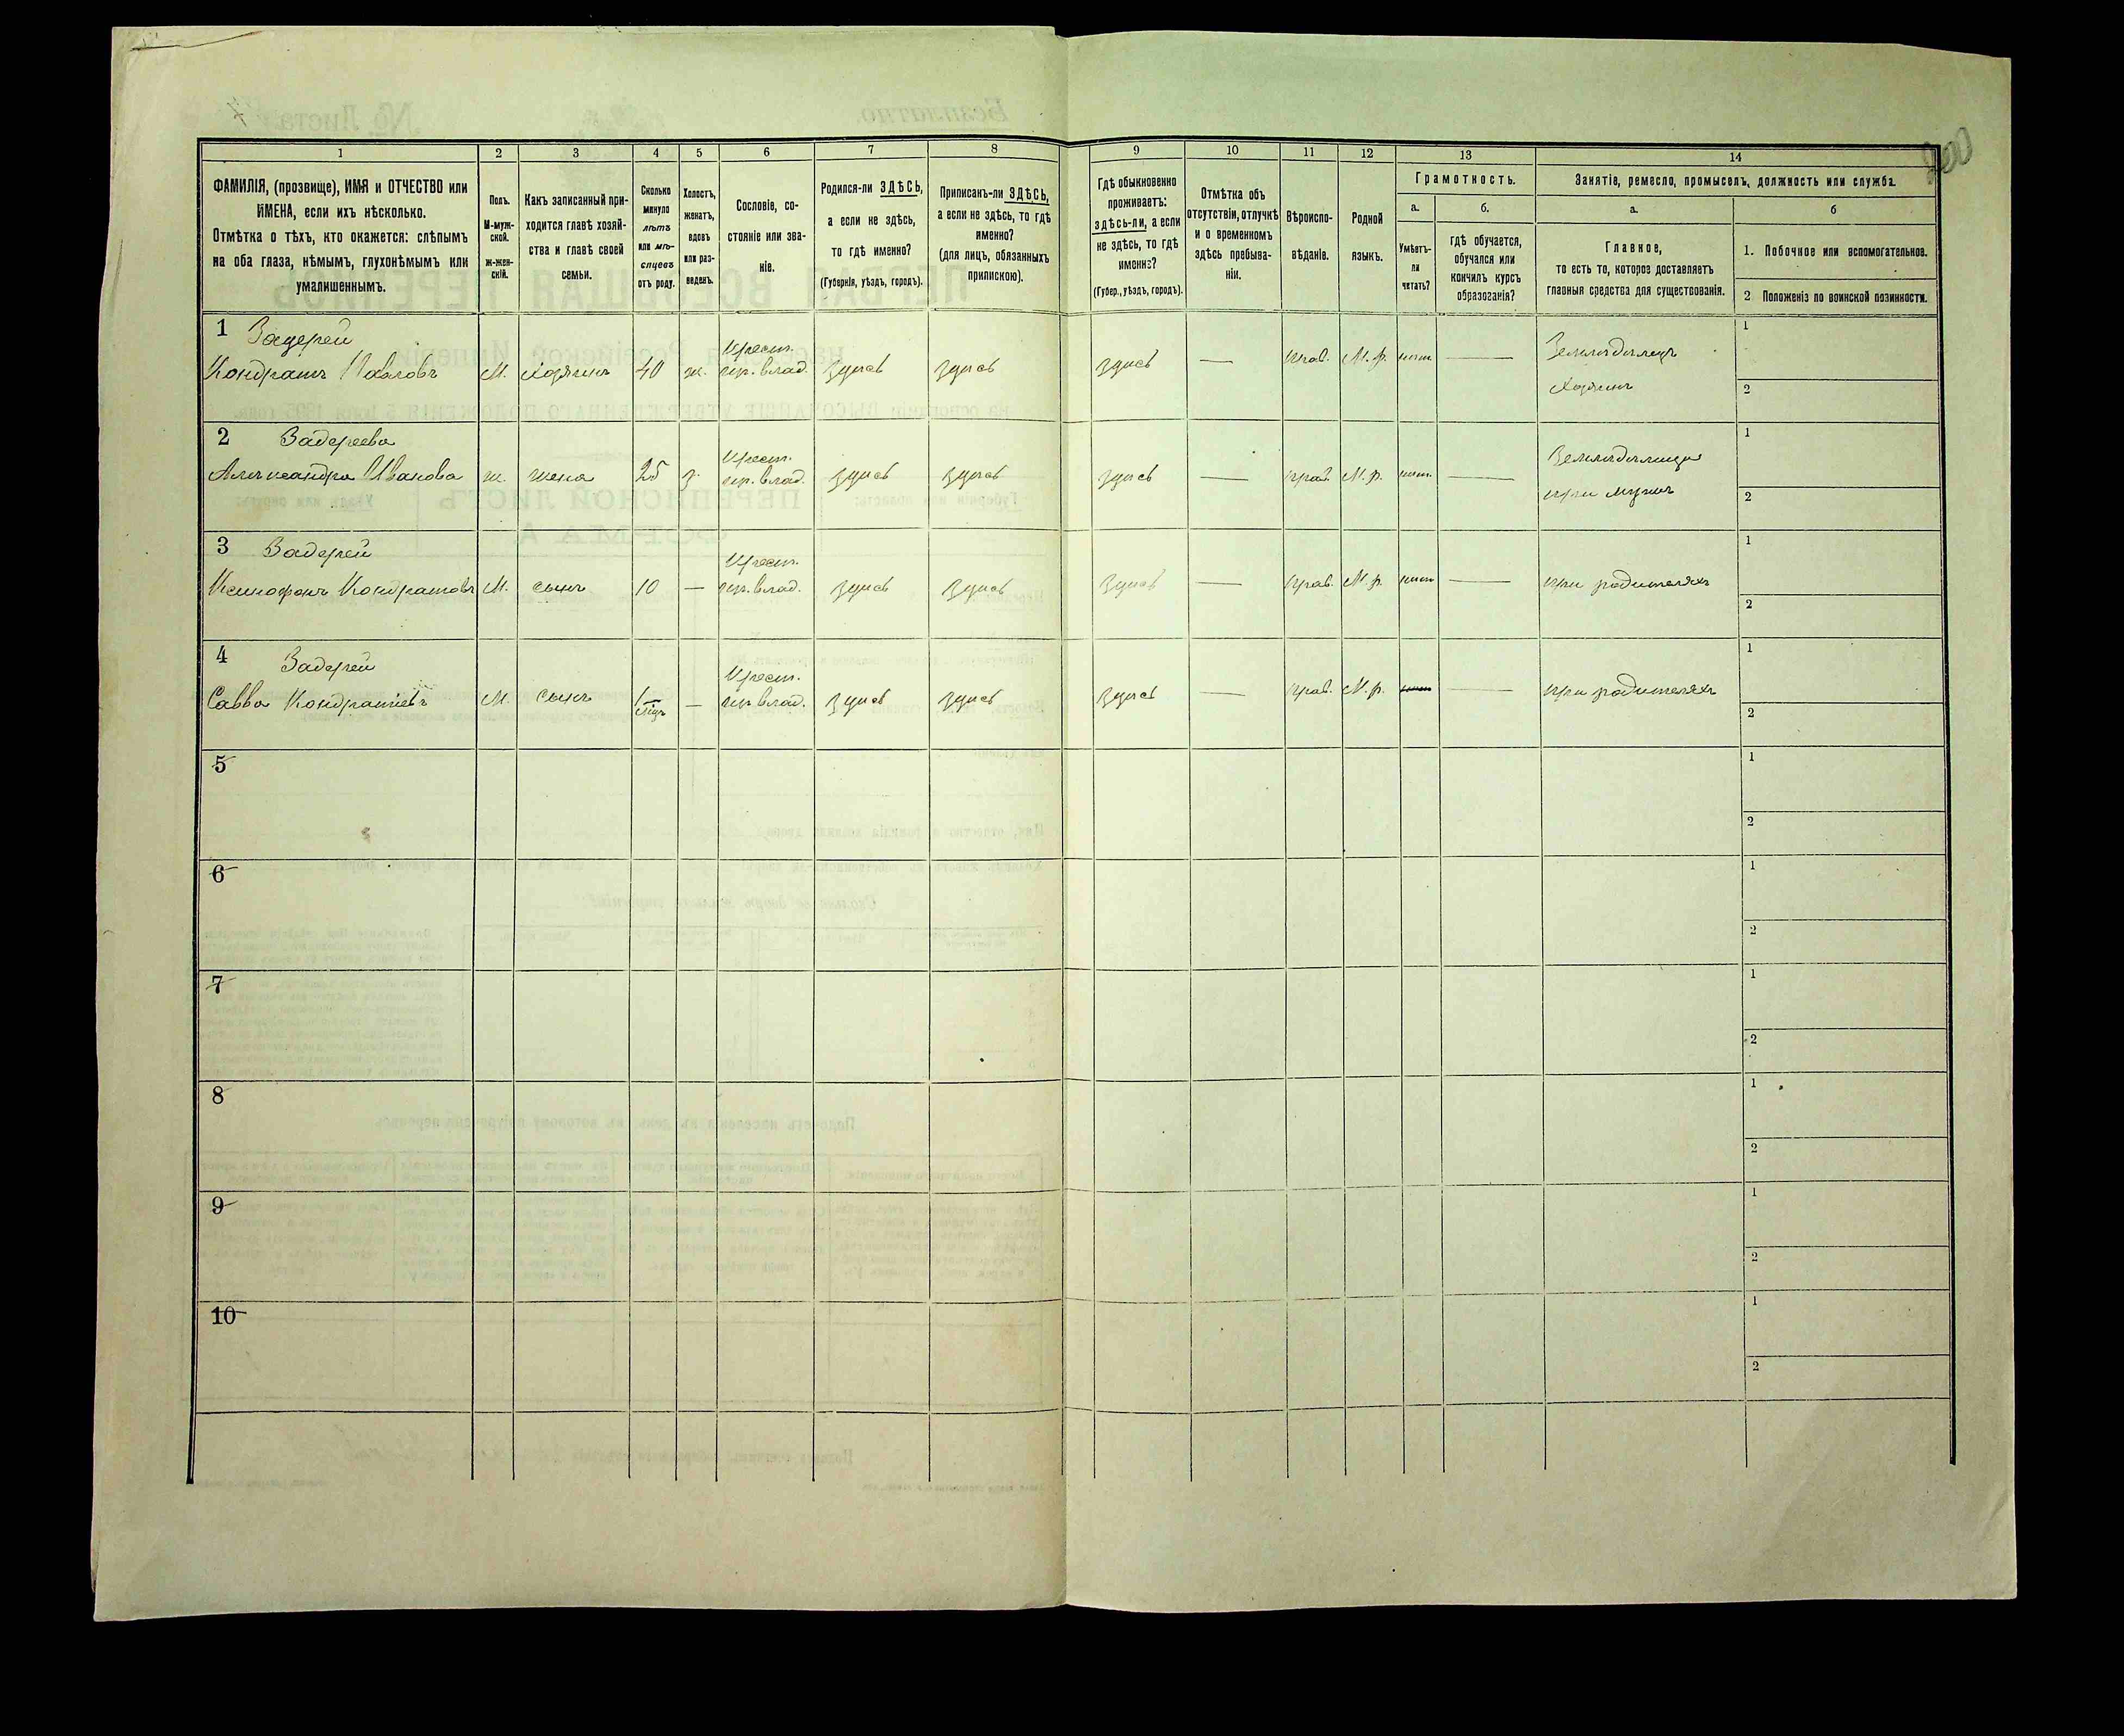 200
1 2 3 4 5 6 7 8 9 10 11 12 13 14
ФАМИЛІЯ, (прозвище), ИМЯ и ОТЧЕСТВО или
ИМЕНА, если ихъ нѣсколько.
Отмѣтка о тѣхъ, кто окажется: слѣпымъ
на оба глаза, нѣмымъ, глухонѣмымъ или
умалишеннымъ.
Полъ.
М-муж-
ской.
ж-жен-
скій.
Какъ записанный при-
ходится главѣ хозяй-
ства и главѣ своей
семьи.
Сколько
минуло
лѣтъ
или мѣ-
сяцевъ
отъ роду.
Холостъ,
женатъ,
вдовъ
или раз-
веденъ.
Сословіе, со-
стояніе или зва-
ніе.
Родился-ли ЗДѢСЬ,
а если не здѣсь,
то гдѣ именно?
(Губернія, уѣздъ, городъ).
Приписанъ-ли ЗДѢСЬ,
а если не здѣсь, то гдѣ
именно?
(для лицъ, обязанныхъ
припискою).
Гдѣ обыкновенно
проживаетъ:
здѣсь-ли, а если
не здѣсь, то гдѣ
именно?
(Губер., уѣздъ, городъ).
Отмѣтка объ
отсутствіи, отлучкѣ
и о временномъ
здѣсь пребыва-
ніи.
Вѣроиспо-
вѣданіе.
Родной
языкъ.
Грамотность.
а.
Умѣетъ-
ли
читать?
б.
гдѣ обучается,
обучался или
кончилъ курсъ
образованія?
Занятіе, ремесло, промыселъ, должность или служба.
а.
Главное,
то есть то, которое доставляетъ
главныя средства для существованія.
б
1. Побочное или вспомогательное.
2 Положеніе по воинской повинности.
1 Задерей
Кондратъ Павловъ М. Хозяинъ 40 ж. Крест. гр. влад. Здѣсь Здѣсь Здѣсь — Прав. М. р. нѣтъ — Земледѣлецъ
Хозяинъ
1
2
2 Задереева
Александра Иванова ж. жена 25 з. Крест. гр. влад. Здѣсь Здѣсь Здѣсь — Прав. М. р. нѣтъ — Земледѣлица
при мужѣ
1
2
3 Задерей
Ксенофонъ Кондратовъ М. сынъ 10 — Крест. гр. влад. Здѣсь Здѣсь Здѣсь — Прав. М. р. нѣтъ — при родителяхъ
1
2
4 Задерей
Савва Кондратіевъ М. сынъ 1 мѣц. — Крест. гр. влад. Здѣсь Здѣсь Здѣсь — Прав. М. р. — при родителяхъ
1
2
5
1
2
6
1
2
7
1
2
8
1
2
9
1
2
10
1
2